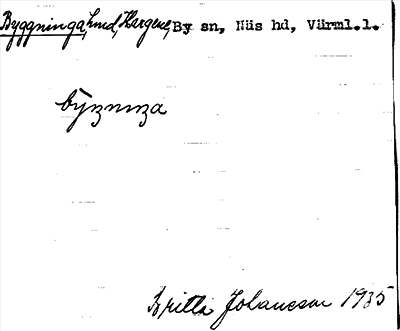 Byggninga, hmd, Hargene, By sn, Näs hd, Värml.l.
býggnıŋa
Britta Johansson 1935